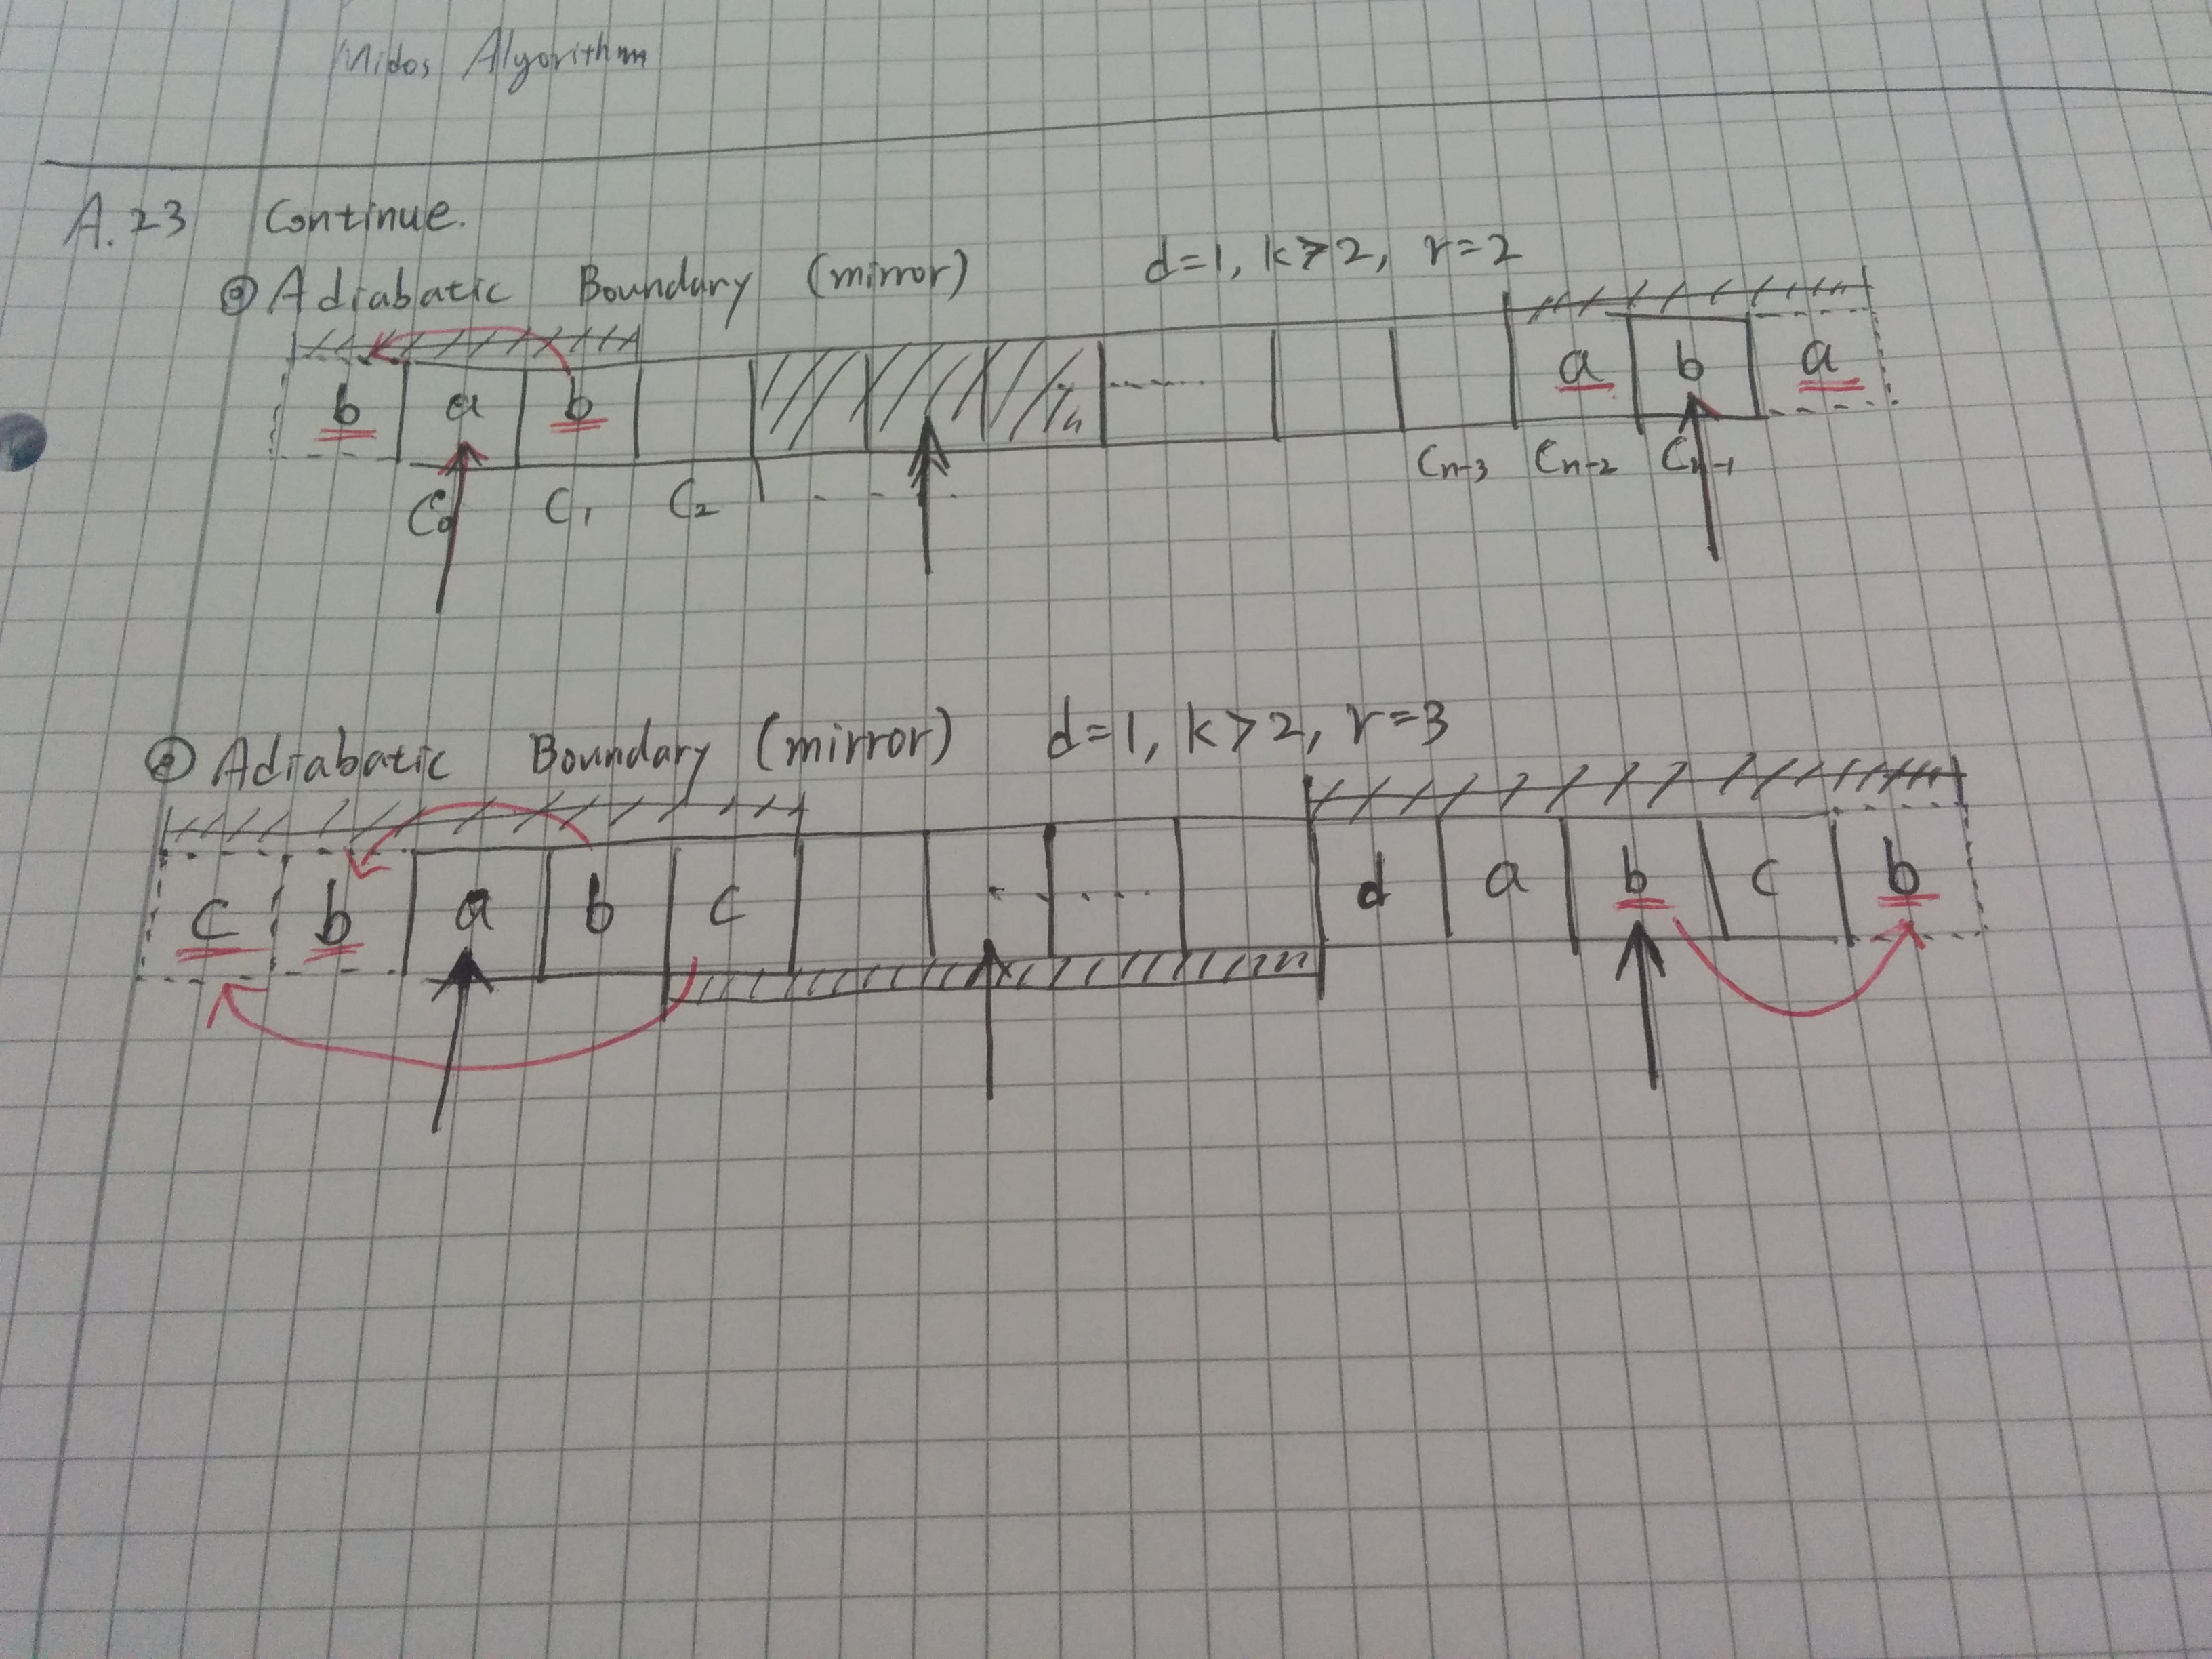 Midos Algorithm
A.23 Continue.
Adiabatic Boundary (mirror) d=1, k>2, r=2
b a b a b a
C0 C1 C2 Cn-3 Cn-2 Cn-1
Adiabatic Boundary (mirror) d=1, k>2, r=3
c b a b c ..... d a b c b